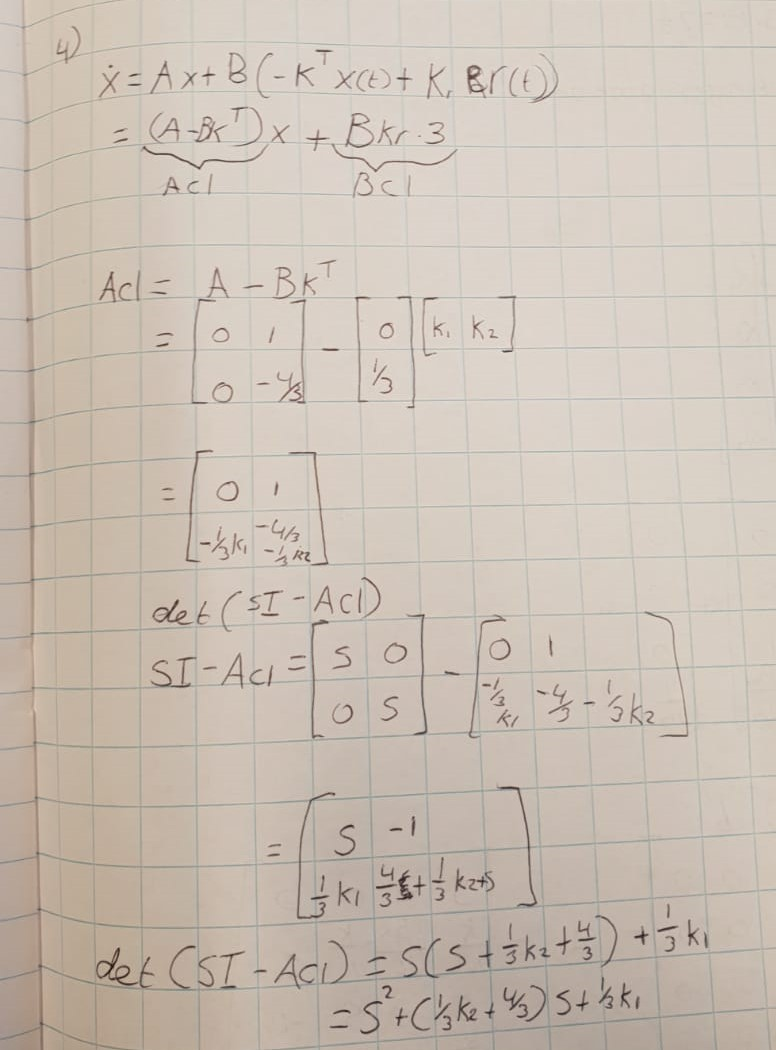 4)
ẋ = Ax + B(-K^T x(t) + K, r(t))
= (A-BK^T)x + BKr·3
Acl Bcl
Acl = A - BK^T
= [0 1; 0 -4/3] - [0; 1/3] [K₁ K₂]
= [0 1; -1/3K₁ -4/3 -1/3K₂]
det(SI - Acl)
SI - Acl = [S 0; 0 S] - [0 1; -1/3 K₁ -4/3 - 1/3K₂]
= [S -1; 1/3 K₁ 4/3 + 1/3 K₂+S]
det(SI - Acl) = S(S + 1/3K₂ + 4/3) + 1/3K₁
= S² + (1/3K₂ + 4/3)S + 1/3K₁